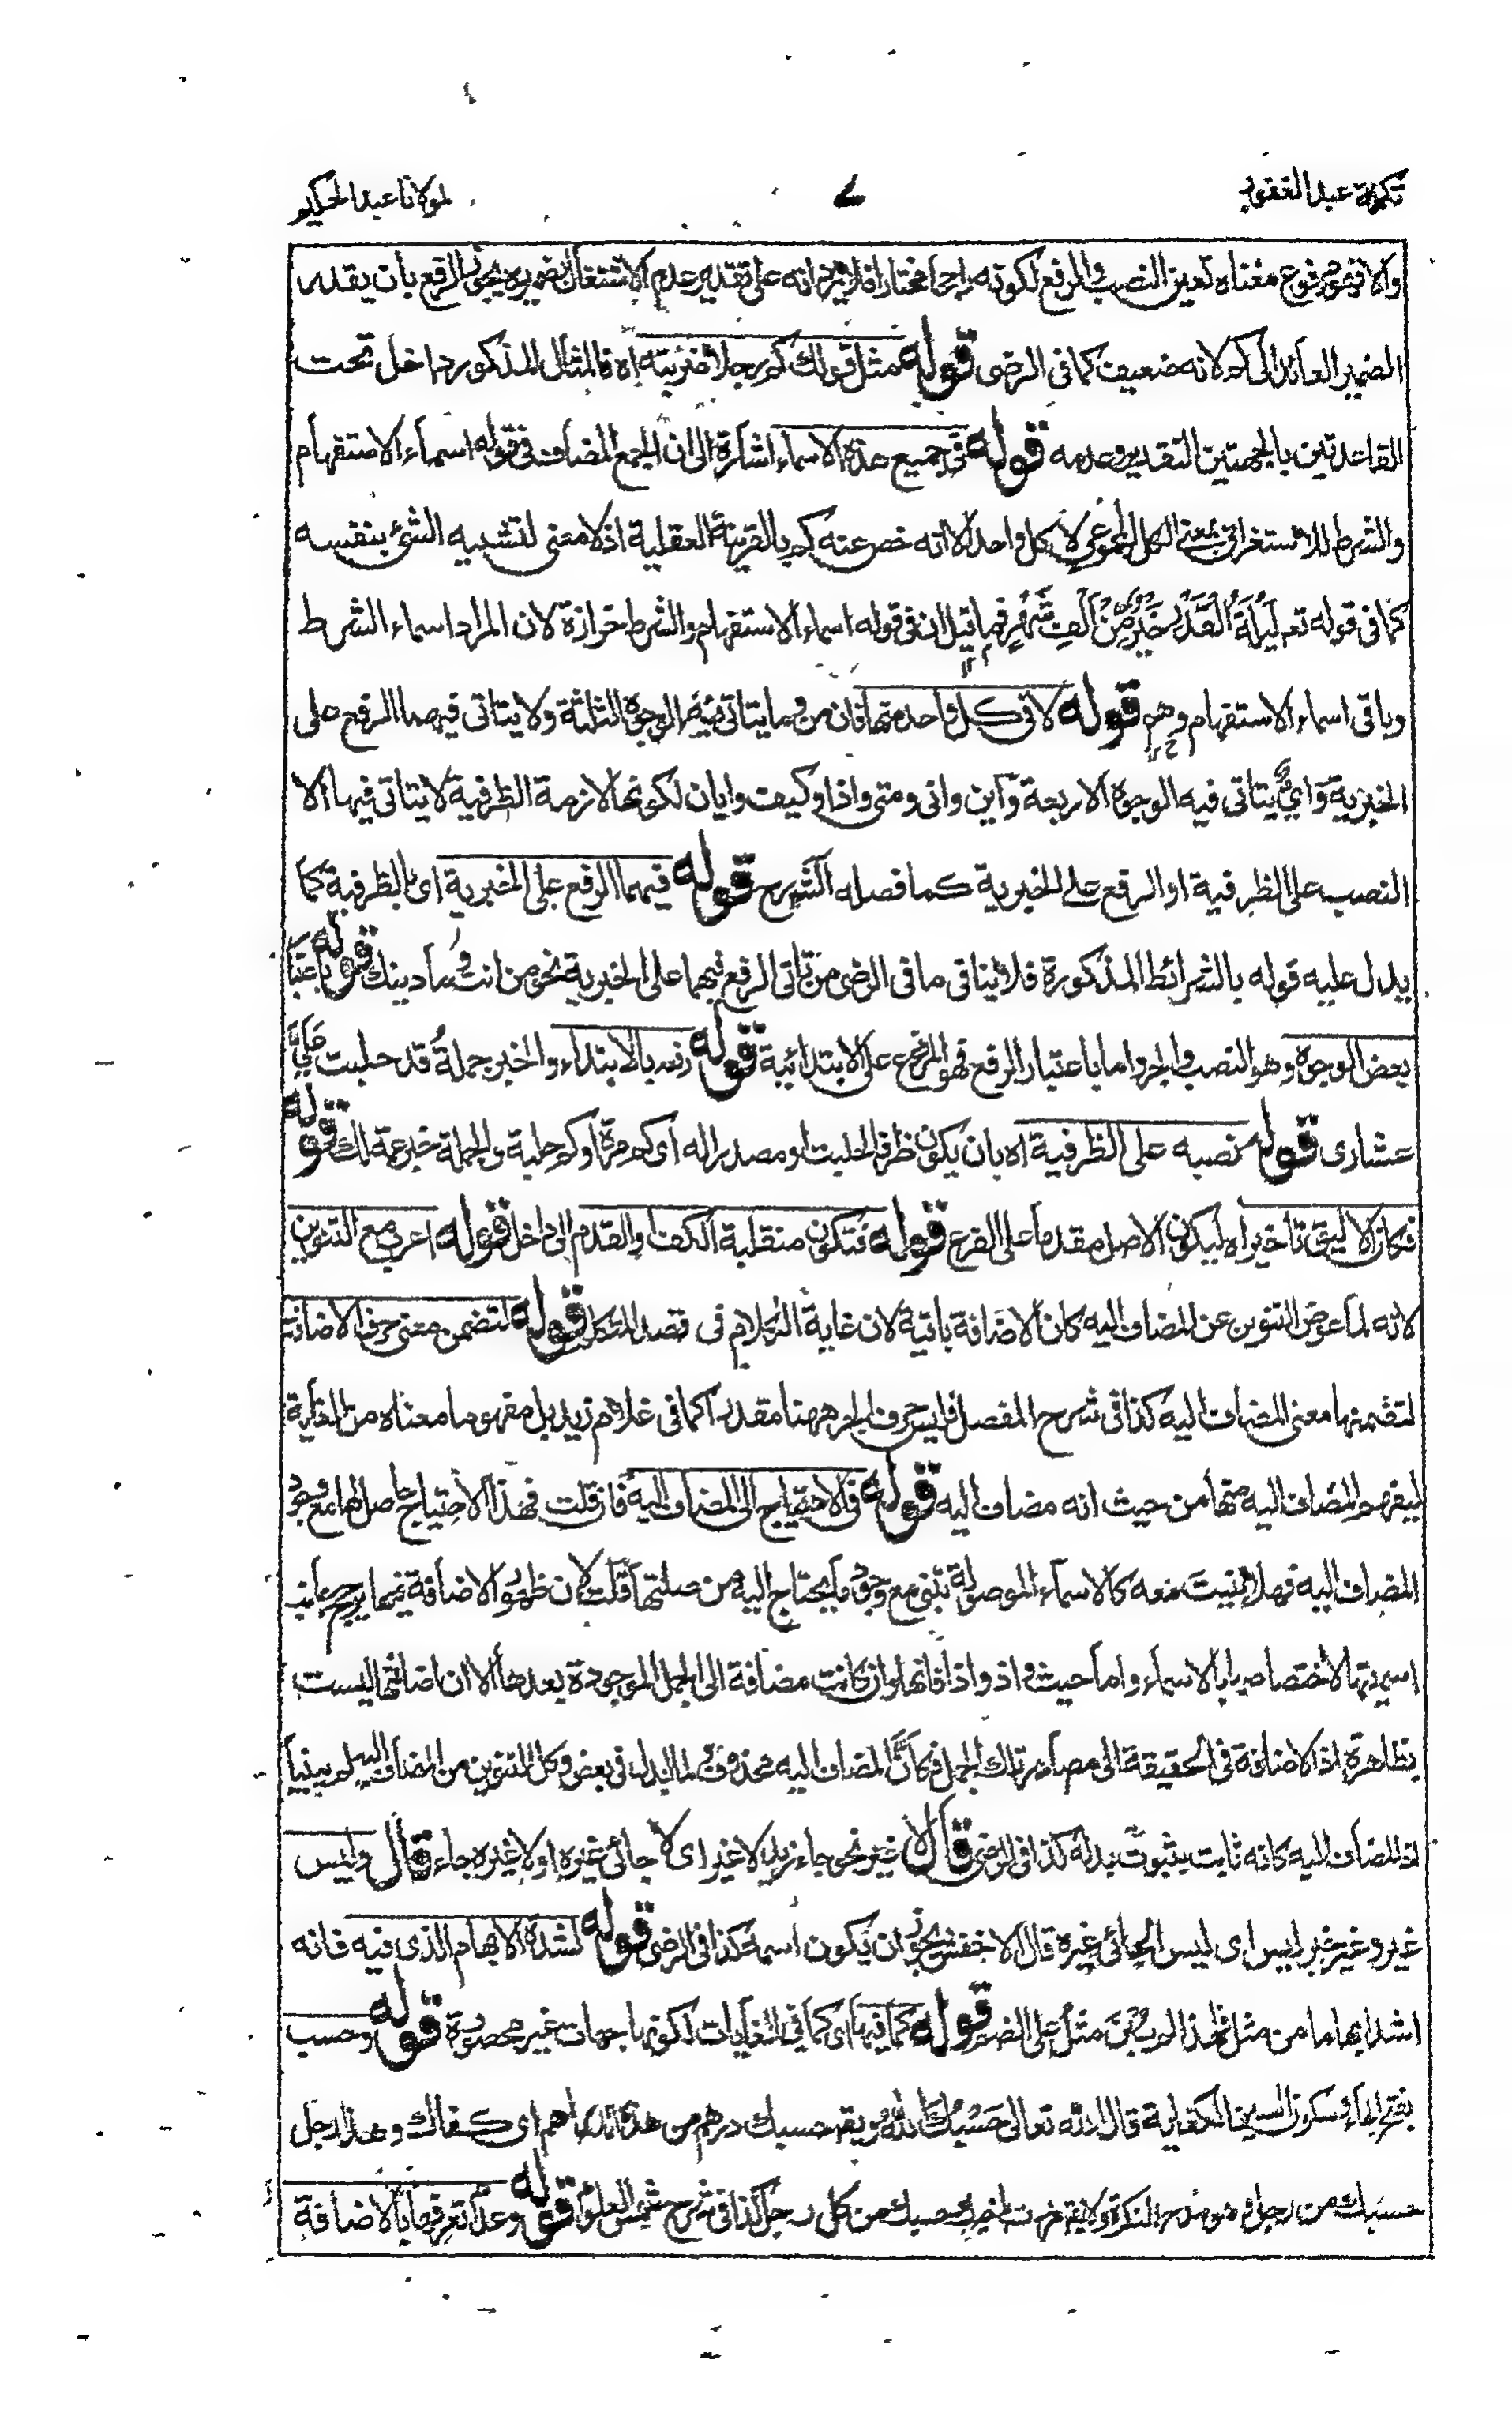 تكملة عبد الغفور ٧ لمولانا عبد الحكيم
والا فهو مرفوع معناه تعين النصب والرفع لكونه راجحا مختارا فلا يرد انه على تقدير عدم الاشتغال بضميره يجوز الرفع بان يقدر
الضمير العائد الى كم لانه ضعيف كما فى الرضى قوله مثل قولك كم رجلا ضربته اه فالمثال المذكور داخل تحت
القاعدتين بالجهتين التقدير وعدمه قوله فى جميع هذه الاسماء اشارة الى ان الجمع المضاف فى قوله اسماء الاستفهام
والشرط للاستغراق بمعنى الكل المجموعى لا كل واحد الا انه خص عنه كم بالقرينة العقلية اذ لا معنى لتشبيه الشئ بنفسه
كما فى قوله تع ليلة القدر خير من الف شهر فما قيل ان فى قوله اسماء الاستفهام والشرط حزازة لان المراد اسماء الشرط
وباقى اسماء الاستفهام وهم قوله لا فى كل واحد منها فان من وما يتاتى فيه الوجوه الثلثة ولا يتاتى فيهما الرفع على
الخبرية واى يتاتى فيه الوجوه الاربعة واين وانى ومتى واذا وكيف وايان لكونها لازمة الظرفية لا يتاتى فيها الا
النصب على الظرفية او الرفع على الخبرية كما فصله الشرح قوله فيهما الرفع على الخبرية اى بالظرفية كما
يدل عليه قوله بالشرائط المذكورة فلا ينافى ما فى الرضى من تاتى الرفع فيهما على الخبرية نحو من انت وما دينك قوله باعتبار
بعض الوجوه وهو النصب والجر واما باعتبار الرفع فهو المرفوع على الابتدائية قوله رفعه بالابتداء والخبر جملة قد حلبت على
عشارى قوله نصبه على الظرفية اه بان يكون ظرفا لحلبت او مصدرا له اى كم مرة او كم حلبة والجملة خبر عمة لك قوله
فكان الاليق تاخيره اه ليكون الاصل مقدما على الفرع قوله فتكون منقلبة الكف والقدم الى داخل قوله اعرب مع التنوين
لانه لما عوض التنوين عن المضاف اليه كان الاضافة باقية لان غاية الكلام فى قصد المتكلم قوله لتضمن معنى حرف الاضافة
لتضمنها معنى المضاف اليه كذا فى شرح المفصل فليس حرف الجر ههنا مقدرا كما فى غلام زيد بل مفهوما معناه من الغاية
ليفهم المضاف اليه منها من حيث انه مضاف اليه قوله فى الاحتياج الى المضاف اليه فان قلت فهذا الاحتياج حاصل لها مع وجود
المضاف اليه فهلا بنيت معه كالاسماء الموصولة تبنى مع وجود ما يحتاج اليه من صلتها قلت لان ظهور الاضافة فيها يرجح جانب
اسميتها لاختصاصها بالاسماء واما حيث واذ واذا فانها وان كانت مضافة الى الجمل الموجودة بعدها الا ان اضافتها ليست
بظاهرة اذ الاضافة فى الحقيقة الى مصادر تلك الجمل فكان المضاف اليه محذوف ولما ابدل فى بعض وكل التنوين من المضاف اليه لم يبنيا
اذ المضاف اليه كانه ثابت بثبوت بدله كذا فى الرضى قال لا غير نحو جاء زيد لا غير اى لا جائى غيره او لا غيره جاء قال وليس
غير وغير خبر ليس اى ليس الجائى غيره قال الاخفش يجوز ان يكون اسمه كذا فى الرضى قوله لشدة الابهام الذى فيه فانه
اشد ابهاما من مثل فلهذا لم يبن مثل على الضم قوله كما فيها اى كما فى الغايات لكونها جهات غير محصورة قوله وحسب
بفتح الحاء وسكون السين الكفاية قال الله تعالى حسبك الله ويقم حسبك درهم من هذه الدراهم اى كفاك وهذا رجل
حسبك من رجل وهو مدح النكرة كذا فى شرح شمس العلوم قوله وعدم تعرفها بالاضافة